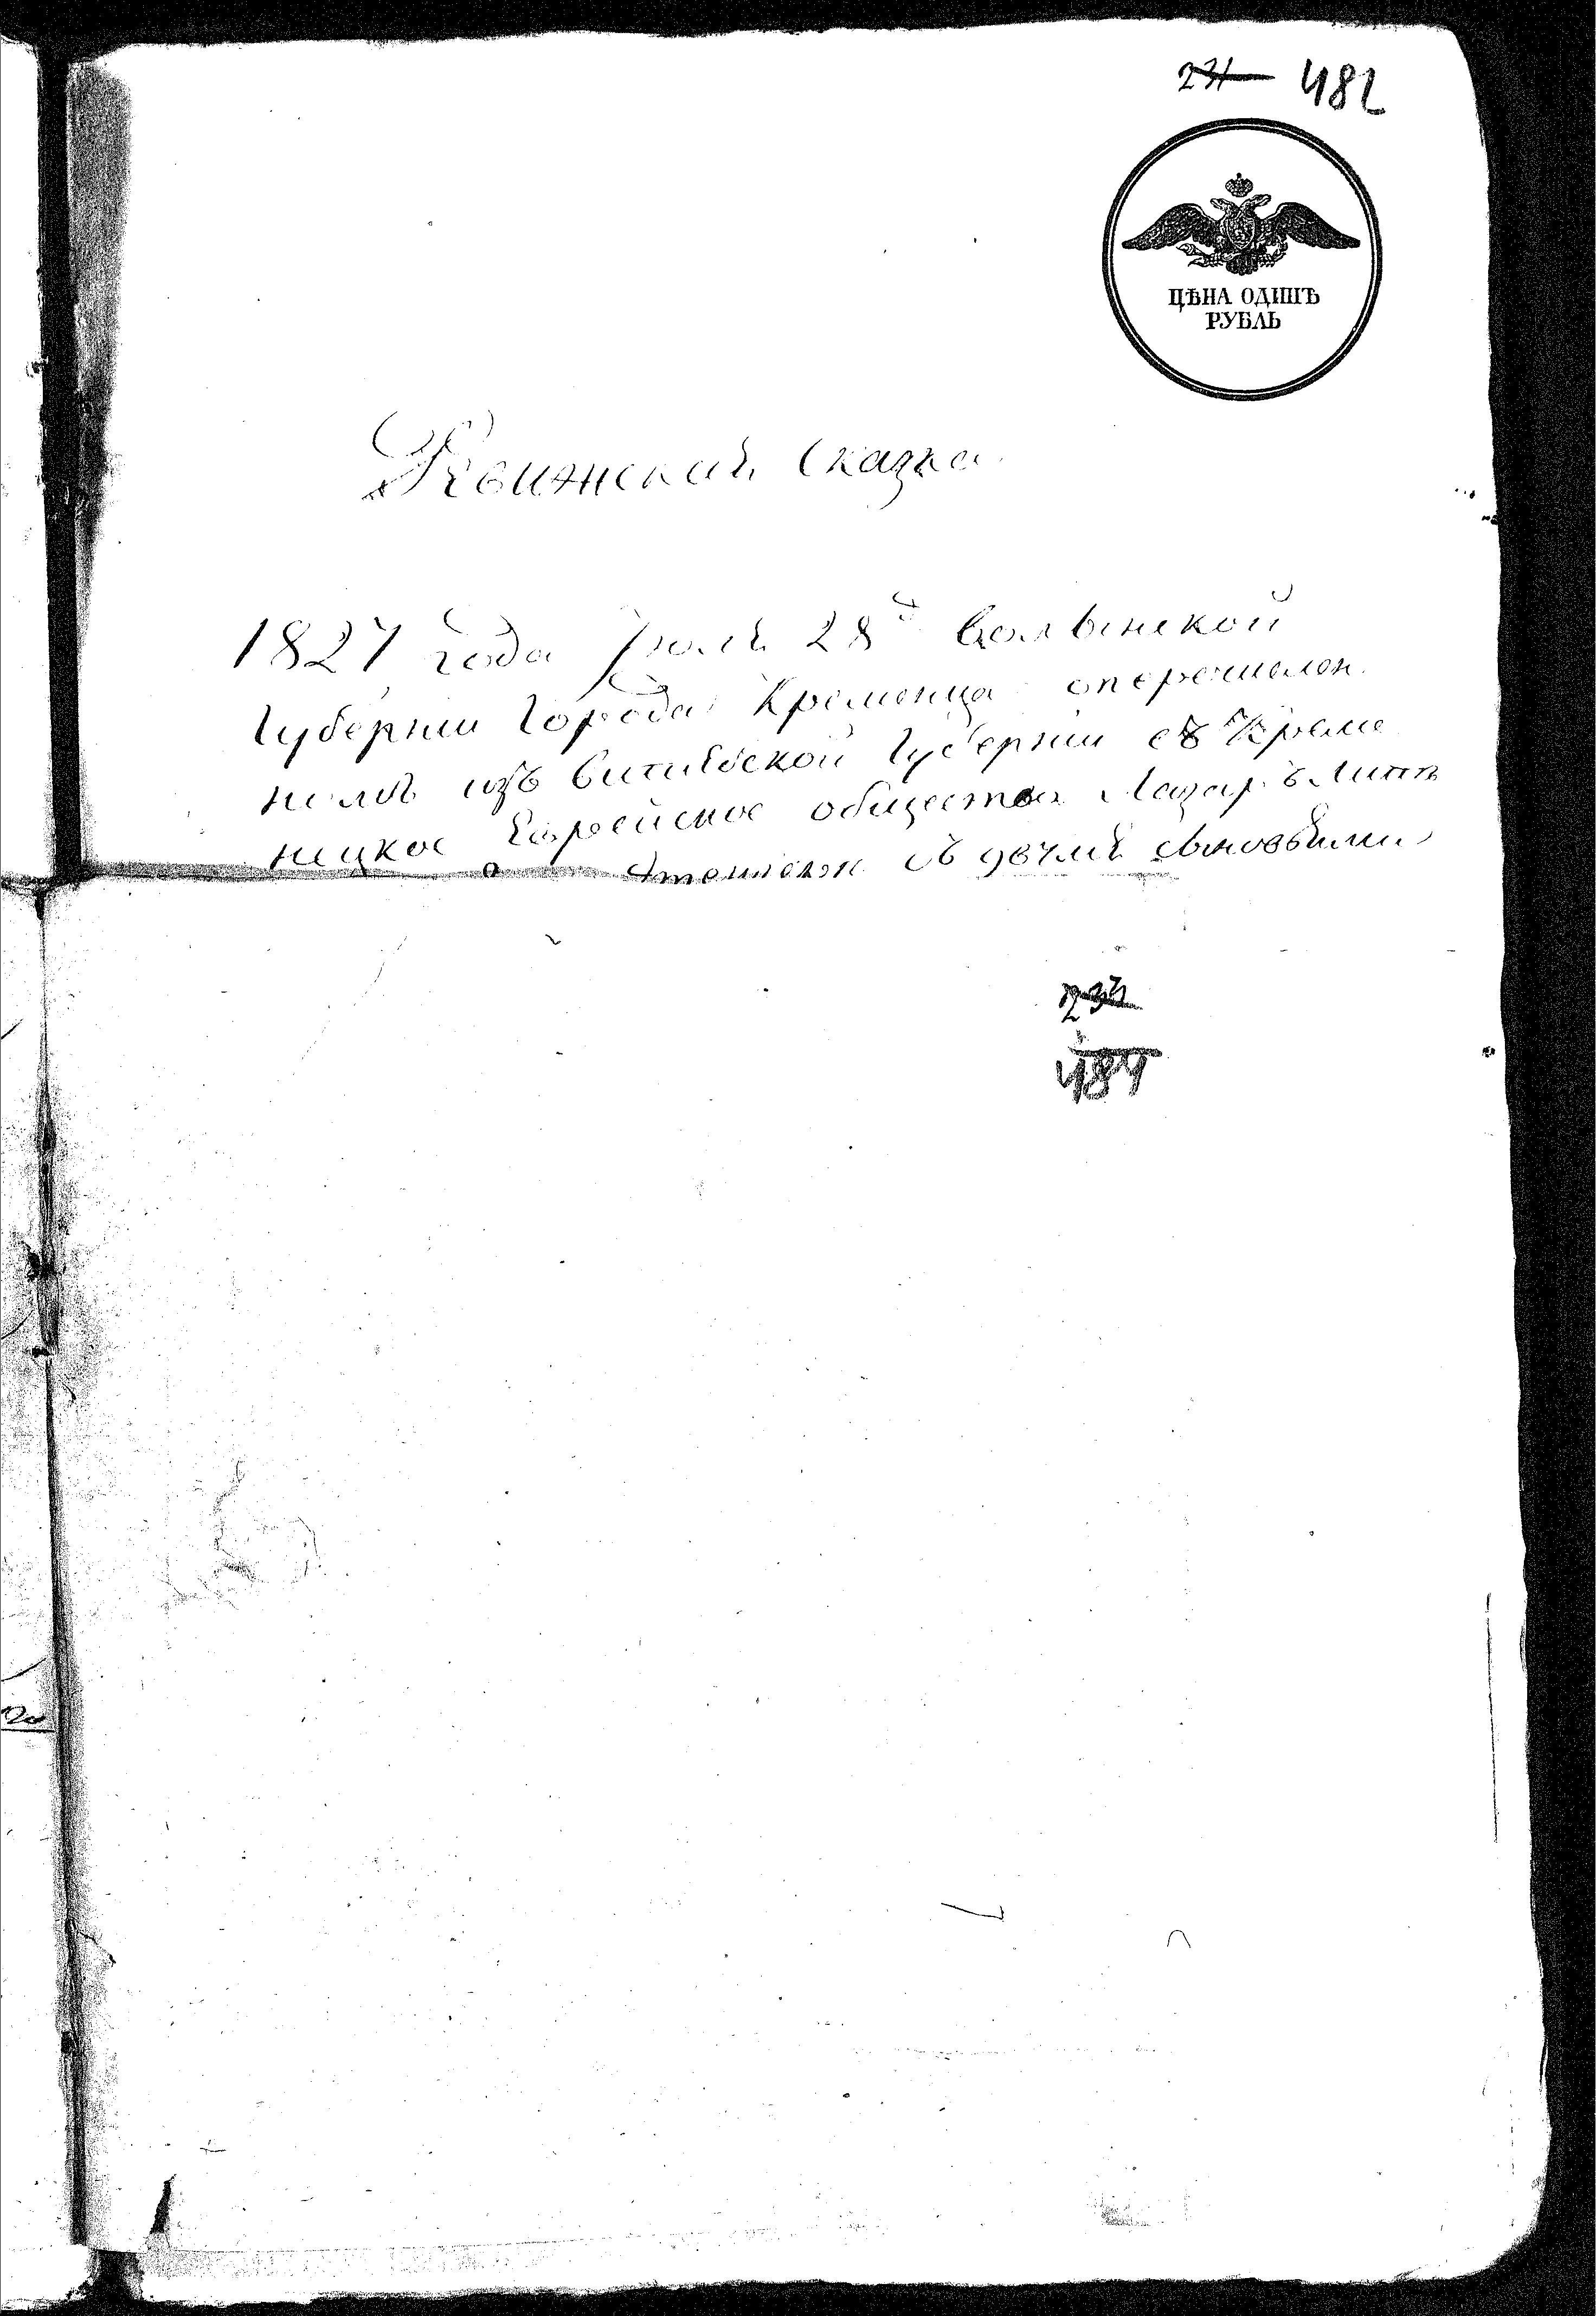 231 482
ЦѢНА ОДИНЪ
РУБЛЬ
Ревижская Сказка
1827 года Іюля 28 Волынской
Губерніи Города Кременца оперечислен
номъ изъ Витебской Губерніи въ Креме
нецкое Еврейское общество Лазаръ
съ двумя сыновьями
484